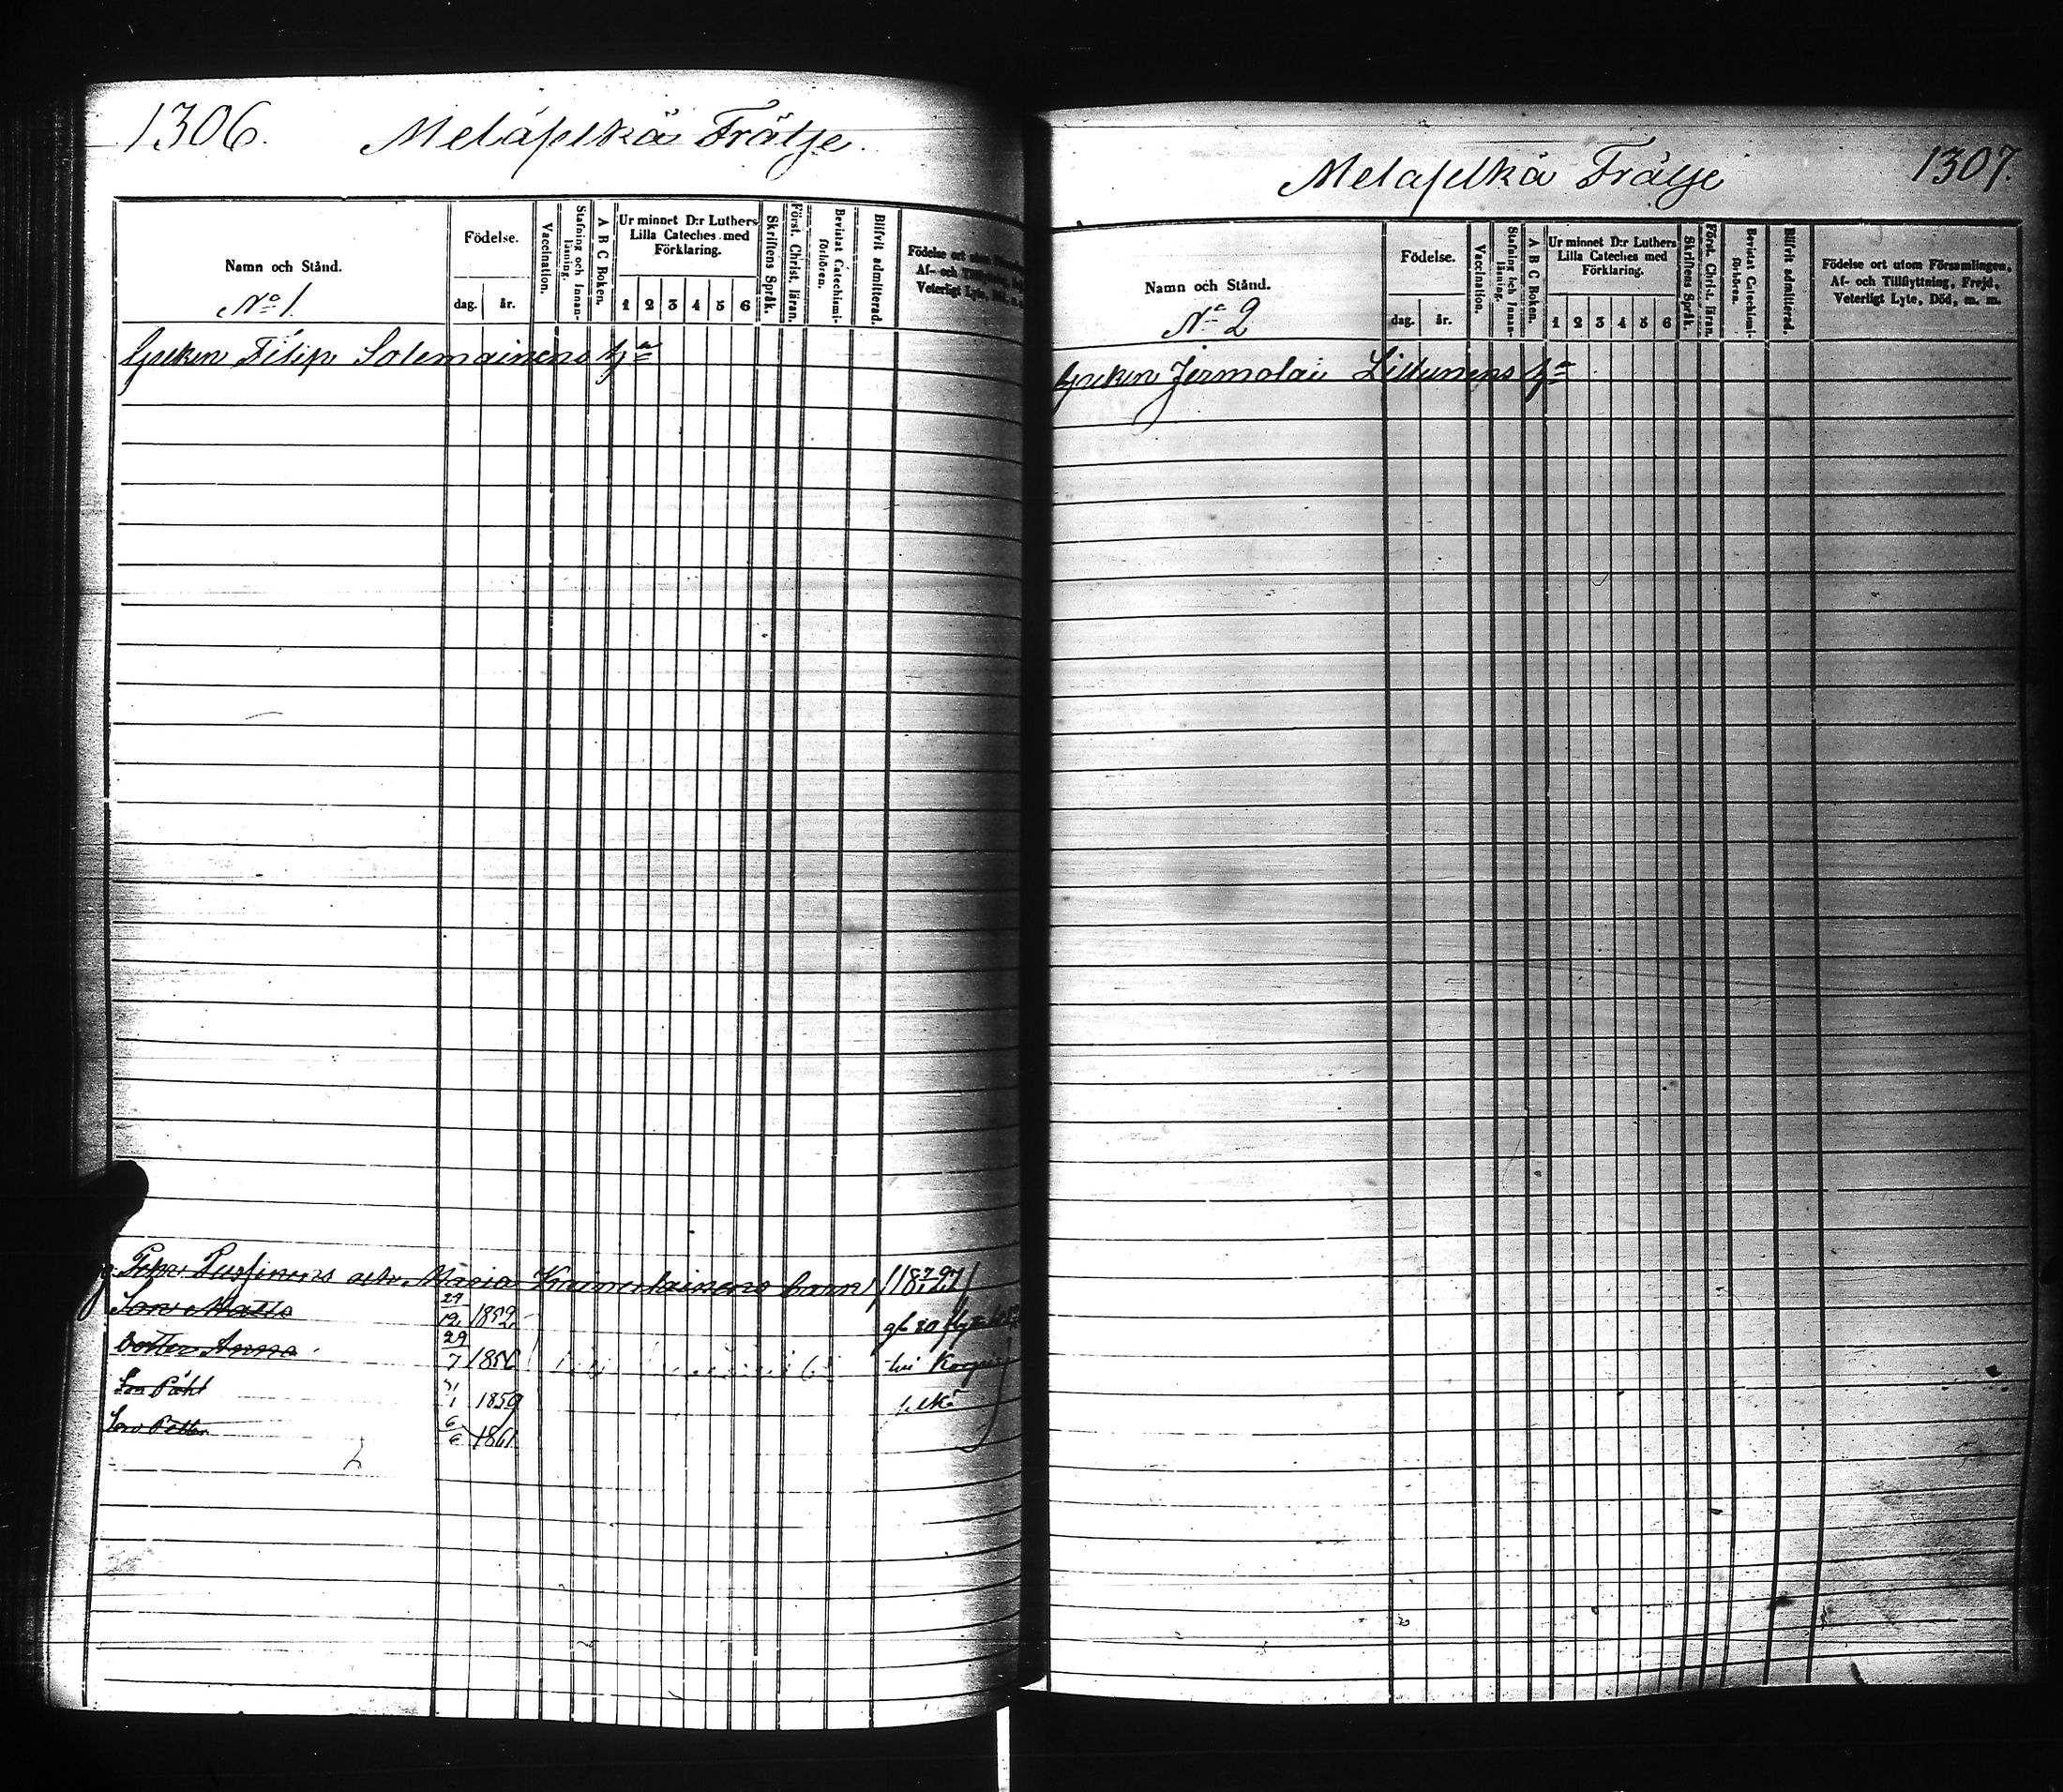 1306. Meläselkä Frälse.
Namn och Stånd.
No 1.
Födelse.
dag. år.
Vaccination.
Stafning och Innanläsning.
A B C Boken.
Ur minnet D:r Luthers Lilla Cateches med Förklaring.
1 2 3 4 5 6
Skriftens Språk.
Först. Christ. läran.
Bevistat Catechismiförhören.
Blifvit admitterad.
Födelse ort utom
Af- och
Veterligt Lyte,
Greken Filip Solemainens hn
Maria barn
Son Matts 29/12 1852
Dotter Anna 29/7 1856
Son Påhl 1 1859
Son Petter 6/6 1861
selkä
Melaselkä Frälse 1307.
Namn och Stånd.
No 2
Födelse.
dag. år.
Vaccination.
Stafning och Innanläsning.
A B C Boken.
Ur minnet D:r Luthers Lilla Cateches med Förklaring.
1 2 3 4 5 6
Skriftens Språk.
Först. Christ. läran.
Bevistat Catechismiförhören.
Blifvit admitterad.
Födelse ort utom Församlingen,
Af- och Tillflyttning, Frejd,
Veterligt Lyte, Död, m. m.
Greken Jermolai hn